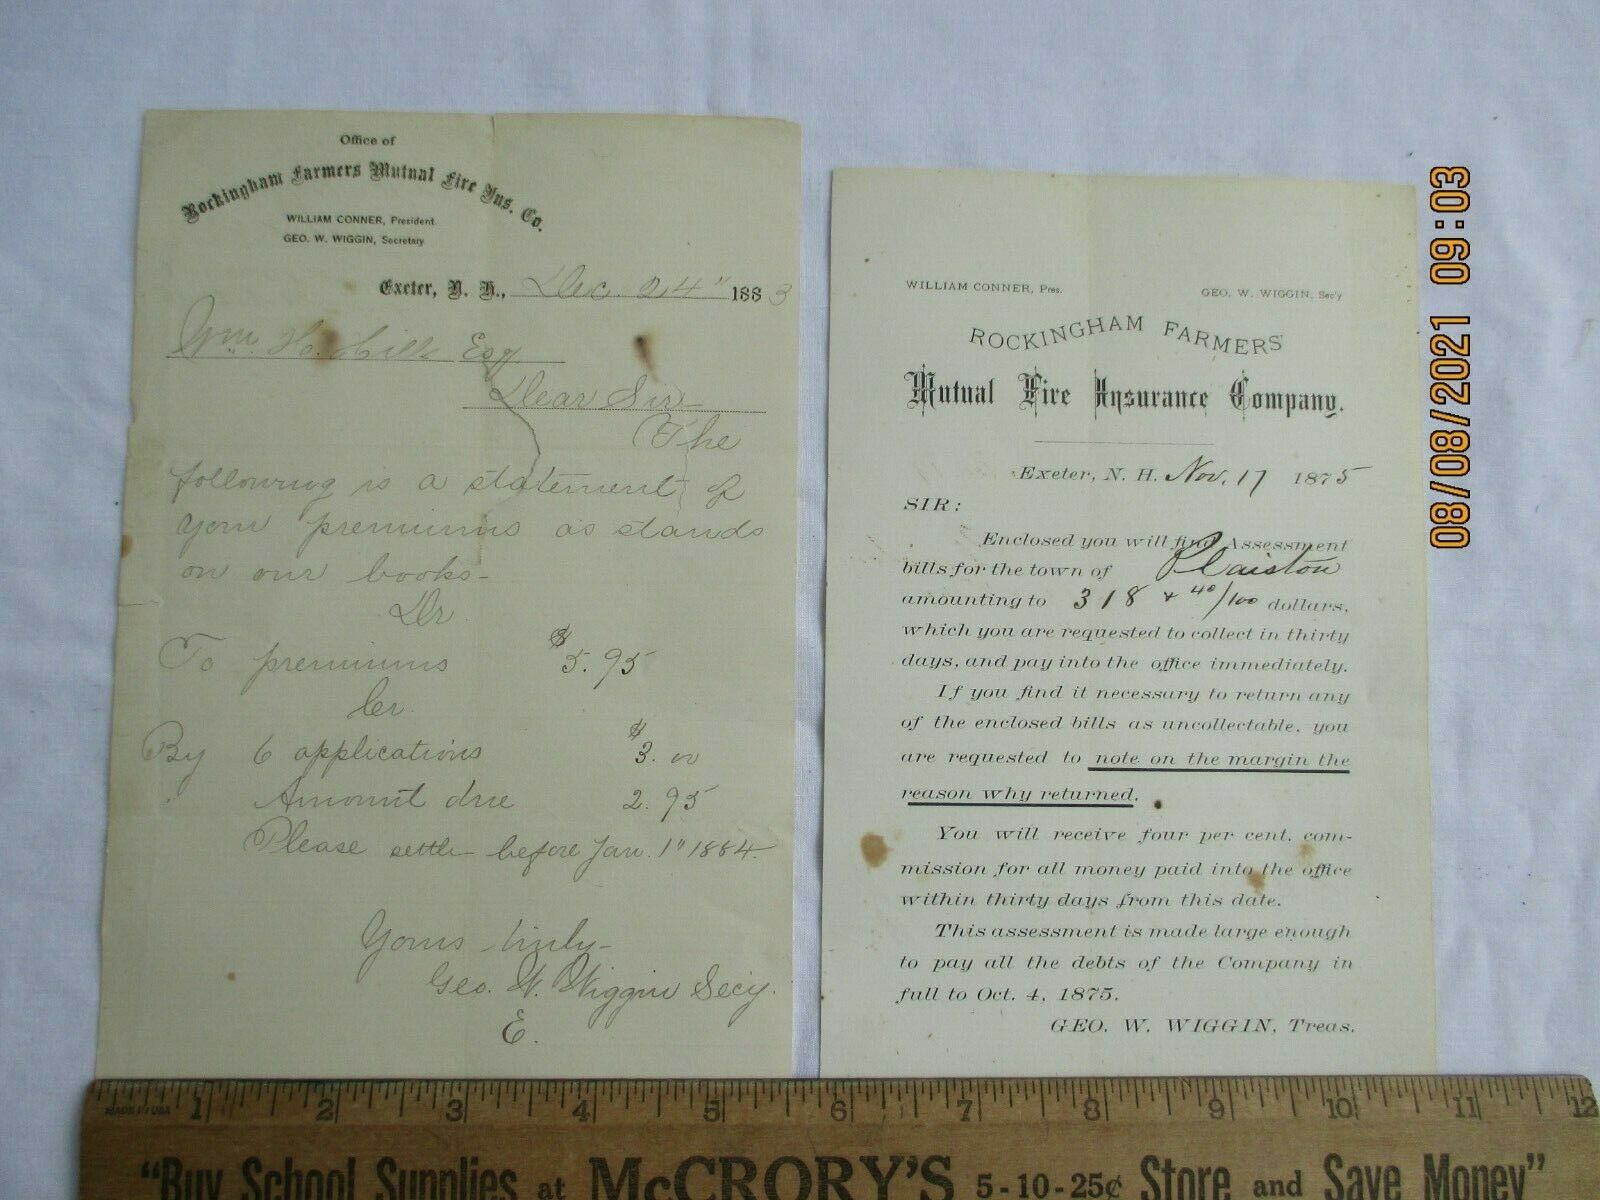 Office of
Rockingham Farmers Mutual Fire Ins. Co.
WILLIAM CONNER, President.
GEO. W. WIGGIN, Secretary
Exeter, N. H., Dec. 24" 1883
Wm. H. Hills Esq
Dear Sir-
The
following is a statement of
your premiums as stands
on our books-
Dr
To premiums $5.95
Cr.
By 6 applications $3.00
Amount due 2.95
Please settle before Jan. 1" 1884.
Yours truly-
Geo. W. Wiggin Secy.
E.
WILLIAM CONNER, Pres. GEO. W. WIGGIN, Sec'y
ROCKINGHAM FARMERS'
Mutual Fire Insurance Company.
Exeter, N. H. Nov. 17 1875
SIR:
Enclosed you will find Assessment
bills for the town of Plaistow
amounting to 318 + 40/100 dollars,
which you are requested to collect in thirty
days, and pay into the office immediately.
If you find it necessary to return any
of the enclosed bills as uncollectable, you
are requested to note on the margin the
reason why returned.
You will receive four per cent. com-
mission for all money paid into the office
within thirty days from this date.
This assessment is made large enough
to pay all the debts of the Company in
full to Oct. 4, 1875.
GEO. W. WIGGIN, Treas.
08/08/2021 09:03
MADE IN USA 1 2 3 4 5 6 7 8 9 10 11 12
"Buy School Supplies at McCRORY'S 5-10-25¢ Store and Save Money"